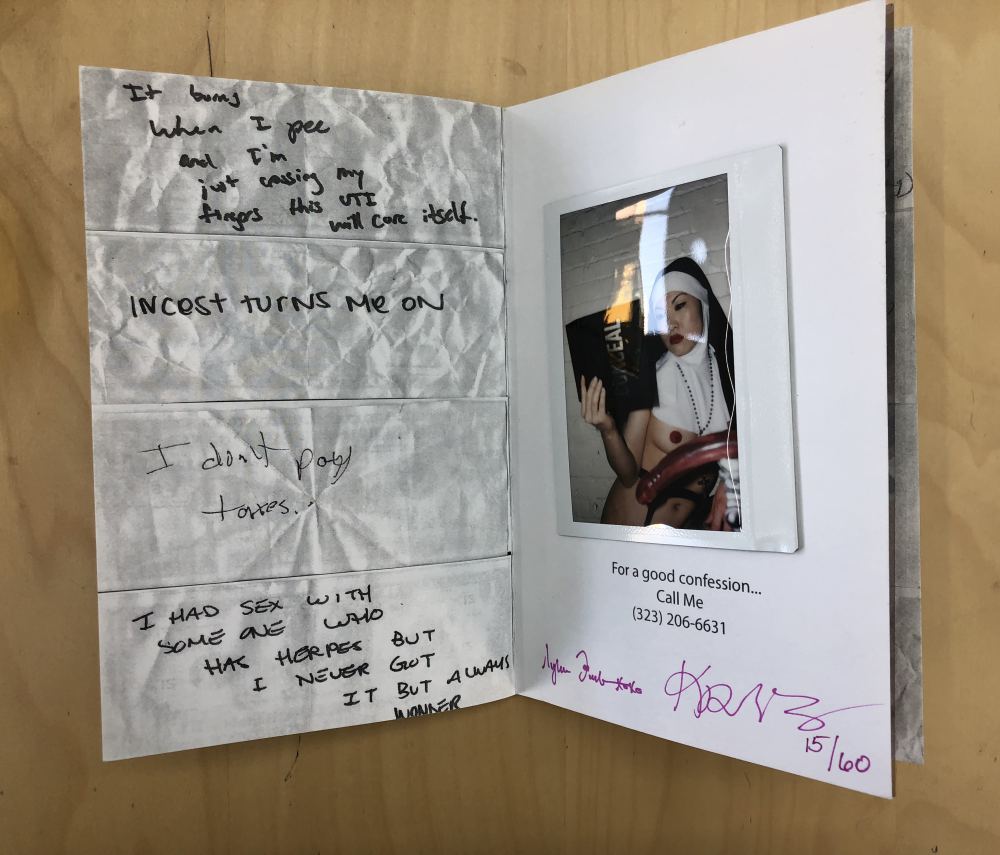 It burns
when I pee
and I'm
just crossing my
fingers this UTI
will cure itself.
INCEST TURNS Me ON
I don't pay
taxes..
I HAD SEX WITH
SOME ONE WHO
HAS HERPES BUT
I NEVER GOT
IT BUT ALWAYS
WONDER
For a good confession...
Call Me
(323) 206-6631
xoxo
15/60